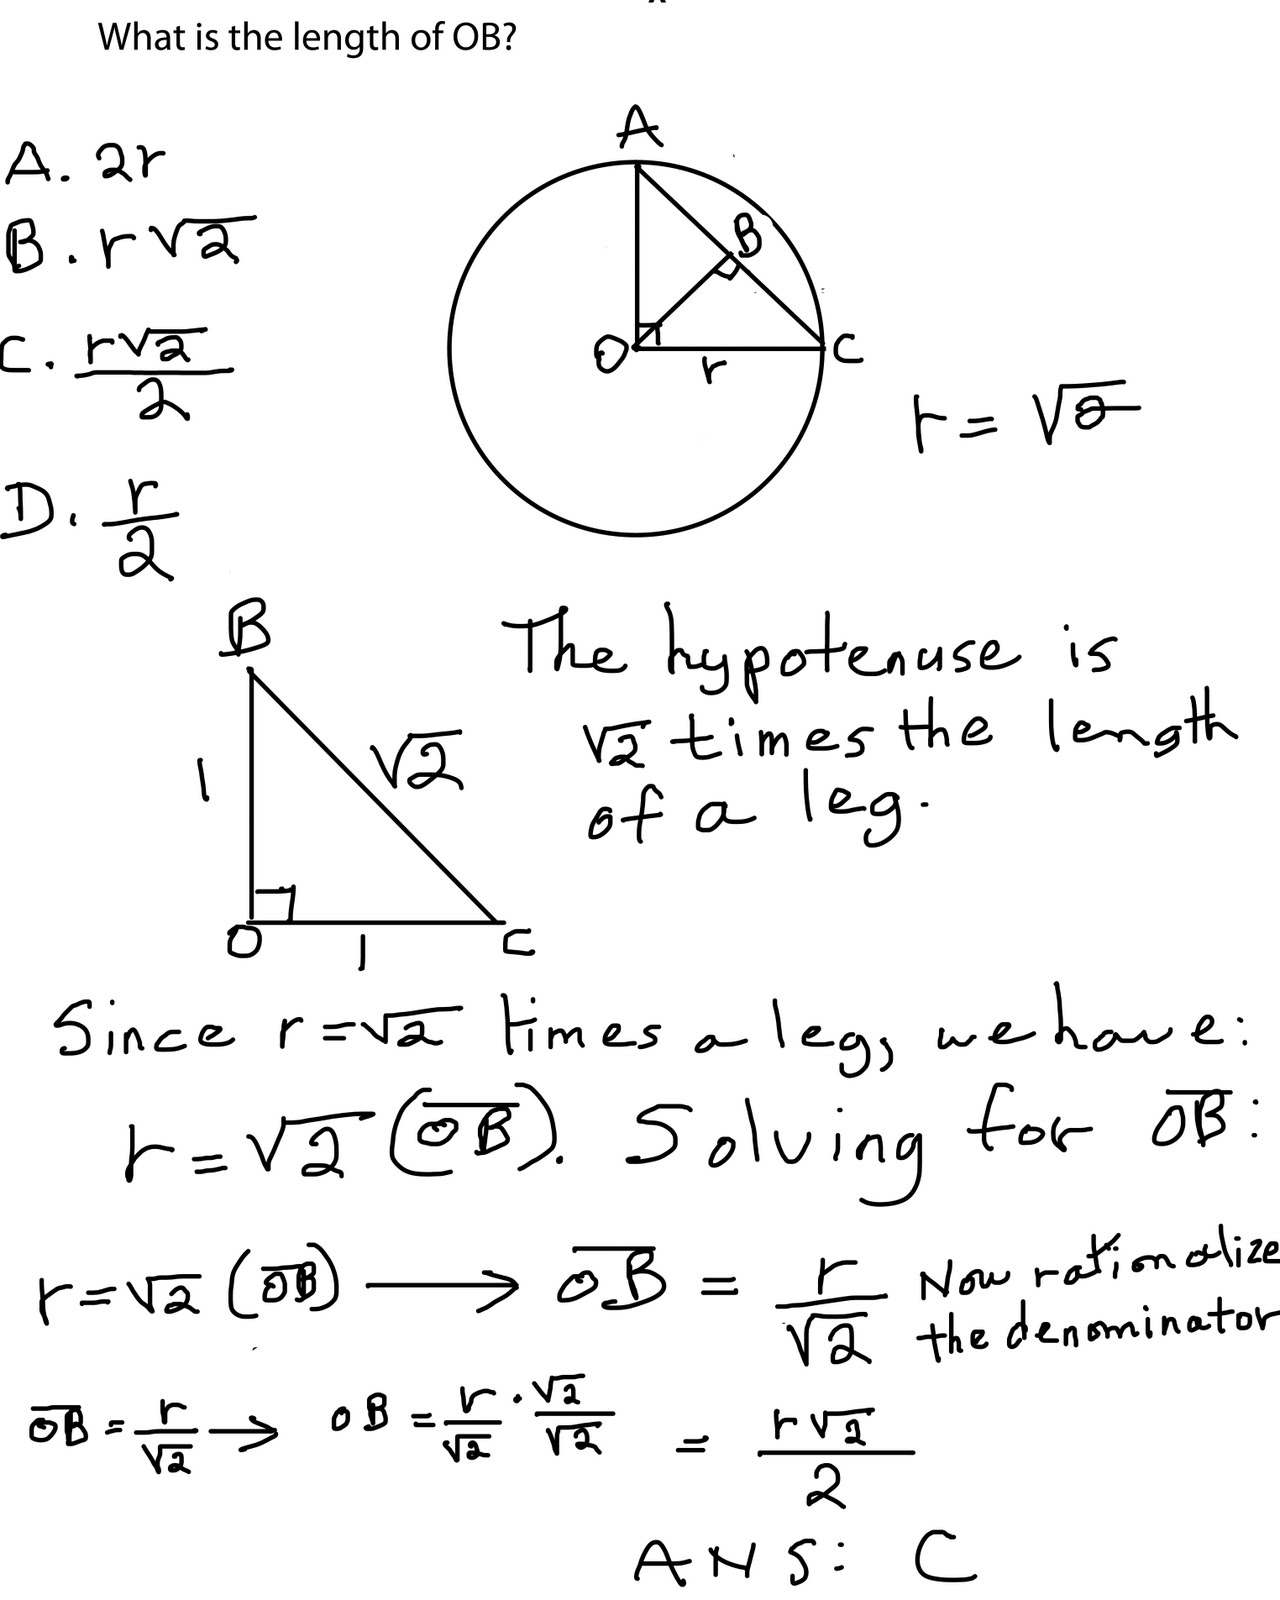 What is the length of OB?
A. 2r
B. r√2
C. r√2/2
D. r/2
A
B
O
r
C
r = √2
B
1
√2
O
1
C
The hypotenuse is
√2 times the length
of a leg.
Since r = √2 times a leg, we have:
r = √2 (OB). Solving for OB:
r = √2 (OB) → OB = r/√2 Now rationalize
the denominator
OB = r/√2 → OB = r/√2 · √2/√2 = r√2/2
ANS: C